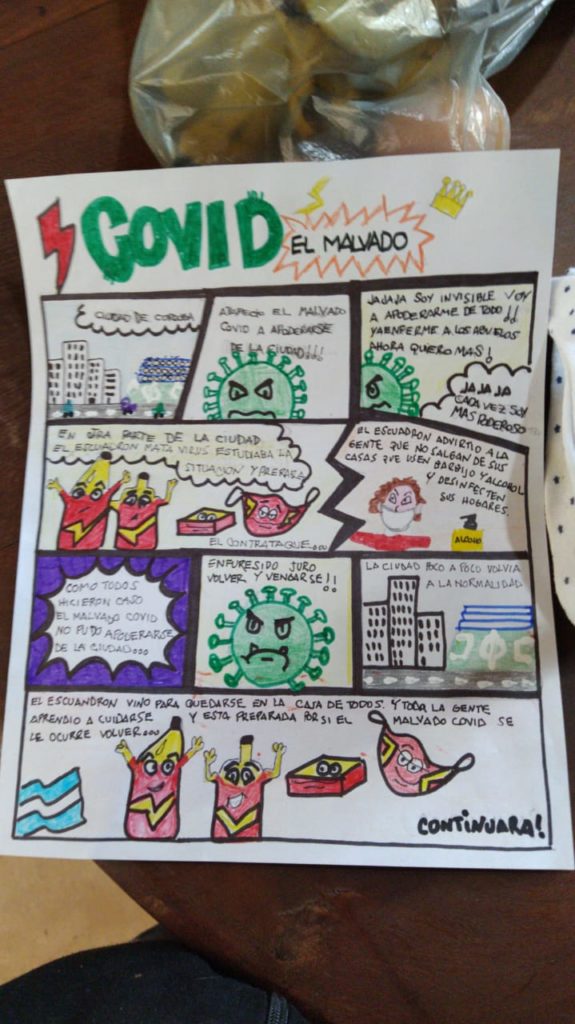 COVID
EL MALVADO
CIUDAD DE CORDOBA
APARECIO EL MALVADO
COVID A APODERARSE
DE LA CIUDAD!!!
JAJAJA SOY INVISIBLE VOY
A APODERARME DE TODO!!
YA ENFERME A LOS ABUELOS
AHORA QUIERO MAS!
JA JA JA
CADA VEZ SOY
MAS PODEROSO
EN OTRA PARTE DE LA CIUDAD
EL ESCUADRON MATA VIRUS ESTUDIABA LA
SITUACION Y PREPARA
EL CONTRATAQUE....
EL ESCUADRON ADVIRTIO A LA
GENTE QUE NO SALGAN DE SUS
CASAS QUE USEN BARBIJO Y ALCOHOL
Y DESINFECTEN
SUS HOGARES.
COMO TODOS
HICIERON CASO
EL MALVADO COVID
NO PUDO APODERARSE
DE LA CIUDAD...
ENFURESIDO JURO
VOLVER Y VENGARSE!!
LA CIUDAD POCO A POCO VOLVIA
A LA NORMALIDAD
EL ESCUANDRON VINO PARA QUEDARSE EN LA CASA DE TODOS. Y TODA LA GENTE
APRENDIO A CUIDARSE Y ESTA PREPARADA POR SI EL MALVADO COVID SE
LE OCURRE VOLVER...
CONTINUARA!